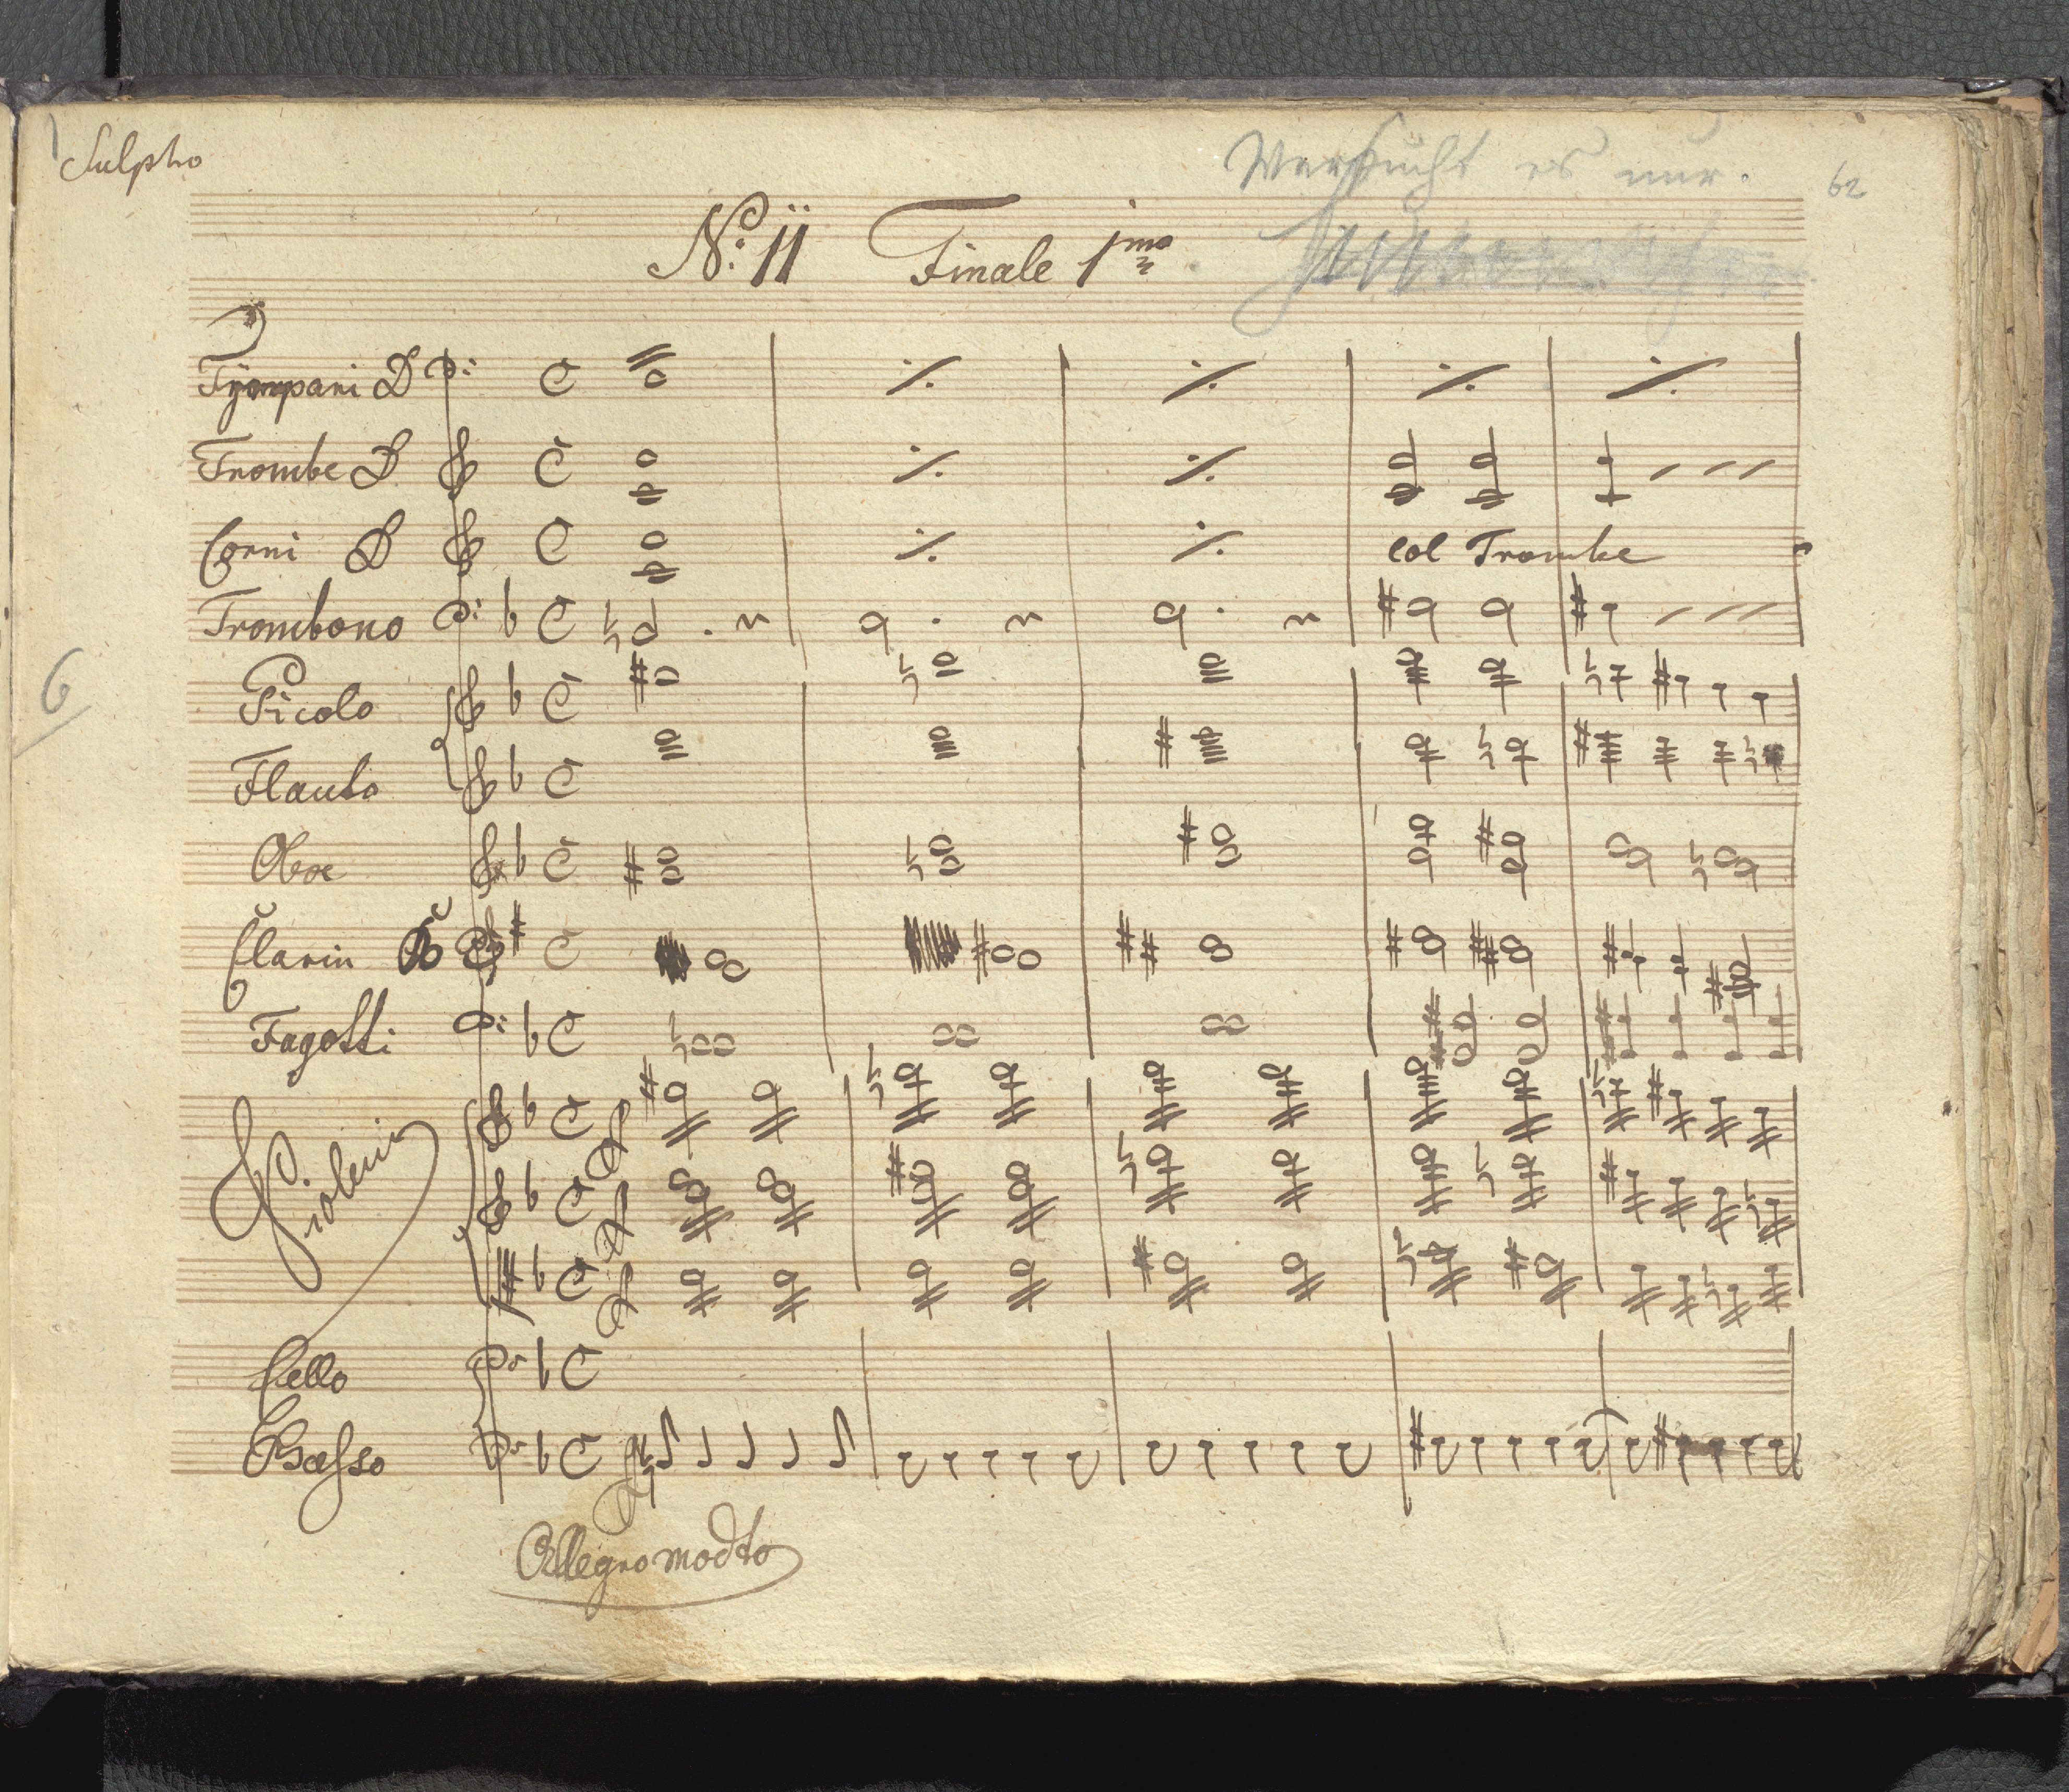 Sulpho
Versucht es nur.
62
No: 11 Finale 1mo
Tÿmpani D
Trombe D
Corni D
col Trombe
Trombono
Picolo
6
Flauto
Oboe
Clarin B
Fagotti
Violini
ff
ff
ff
Cello
Basso
ff
Allegro modto